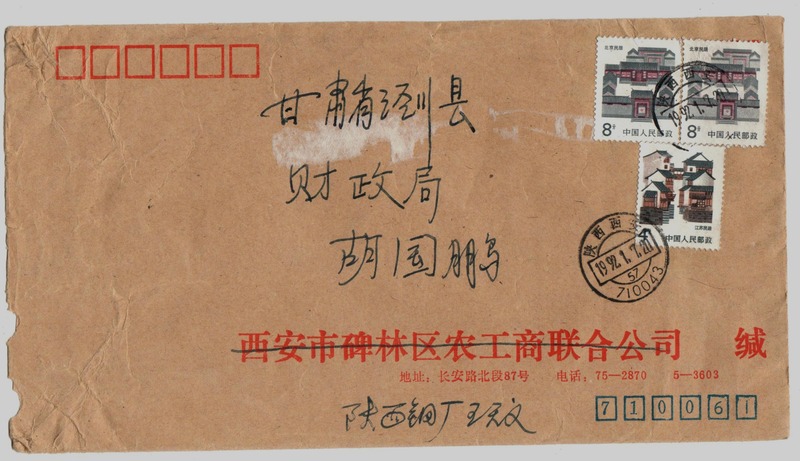 北京民居
8分
中国人民邮政
北京民居
8分
中国人民邮政
陕西西安
1992.1.7.20
甘肃省泾川县
财政局
胡国鹏
江苏民居
4
中国人民邮政
陕西西安
1992.1.7.20
57
710043
西安市碑林区农工商联合公司 缄
地址：长安路北段87号 电话：75—2870 5—3603
陕西钢厂王文
710061